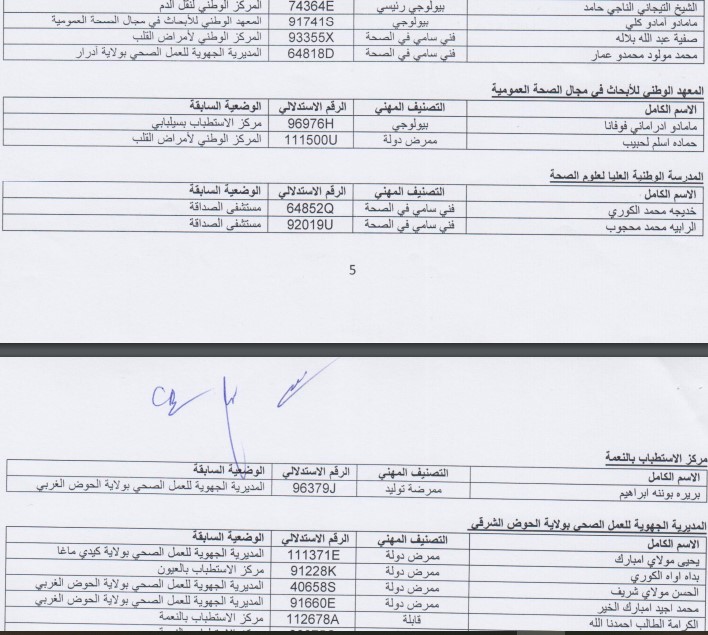 الشيخ التيجاني الناجي حامد بيولوجي رئيسي 74364E المركز الوطني لنقل الدم
مامادو آمادو كلي بيولوجي 91741S المعهد الوطني للأبحاث في مجال الصحة العمومية
صفية عبد الله بلاله فني سامي في الصحة 93355X المركز الوطني لأمراض القلب
محمد مولود محمدو عمار فني سامي في الصحة 64818D المديرية الجهوية للعمل الصحي بولاية آدرار
المعهد الوطني للأبحاث في مجال الصحة العمومية
الاسم الكامل التصنيف المهني الرقم الاستدلالي الوضعية السابقة
مامادو ادراماني فوفانا بيولوجي 96976H مركز الاستطباب بسيلبابي
حماده اسلم لحبيب ممرض دولة 111500U المركز الوطني لأمراض القلب
المدرسة الوطنية العليا لعلوم الصحة
الاسم الكامل التصنيف المهني الرقم الاستدلالي الوضعية السابقة
خديجه محمد الكوري فني سامي في الصحة 64852Q مستشفى الصداقة
الرابيه محمد محجوب فني سامي في الصحة 92019U مستشفى الصداقة
5
مركز الاستطباب بالنعمة
الاسم الكامل التصنيف المهني الرقم الاستدلالي الوضعية السابقة
بريره بوننه ابراهيم ممرضة توليد 96379J المديرية الجهوية للعمل الصحي بولاية الحوض الغربي
المديرية الجهوية للعمل الصحي بولاية الحوض الشرقي
الاسم الكامل التصنيف المهني الرقم الاستدلالي الوضعية السابقة
يحيى مولاي امبارك ممرض دولة 111371E المديرية الجهوية للعمل الصحي بولاية كيدي ماغا
بداه اواه الكوري ممرض دولة 91228K مركز الاستطباب بالعيون
الحسن مولاي شريف ممرض دولة 40658S المديرية الجهوية للعمل الصحي بولاية الحوض الغربي
محمد اجيد امبارك الخير ممرض دولة 91660E المديرية الجهوية للعمل الصحي بولاية الحوض الغربي
الكرامة الطالب احمدنا الله قابلة 112678A مركز الاستطباب بالنعمة